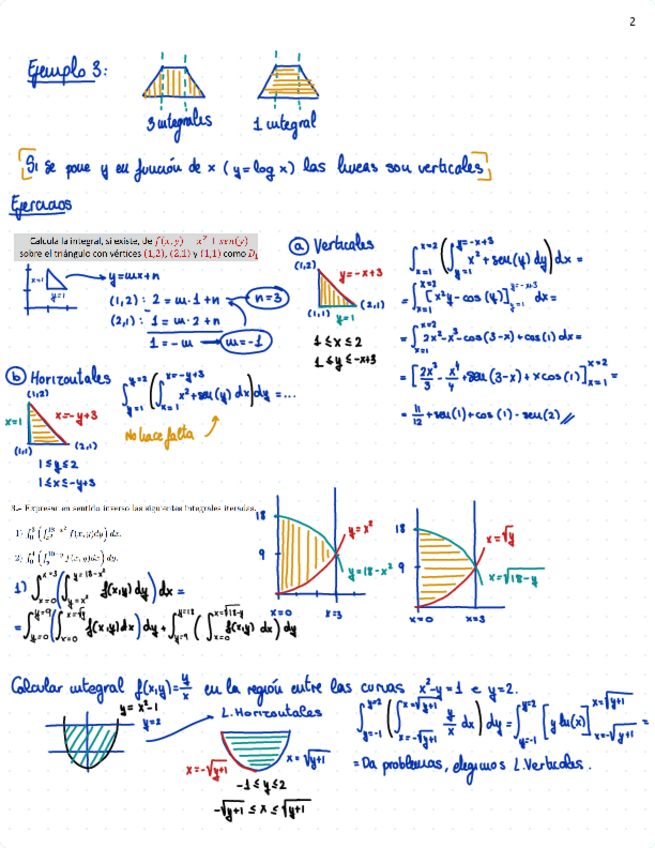 2
Ejemplo 3:
3 integrales
1 integral
Si se pone y en función de x (y=log x) las líneas son verticales
Ejercicios
Calcula la integral, si existe, de f(x,y) = x² + sen(y)
sobre el triángulo con vértices (1,2), (2,1) y (1,1) como D₁
x=1
y=1
y=mx+n
(1,2): 2 = m·1+n
n=3
(2,1): 1 = m·2+n
1 = -m
m=-1
a Verticales
(1,2)
y=-x+3
(2,1)
(1,1)
y=1
1≤x≤2
1≤y≤-x+3
∫_{x=1}^{x=2} (∫_{y=1}^{y=-x+3} x²+sen(y) dy) dx =
= ∫_{x=1}^{x=2} [x²y-cos(y)]_{y=1}^{y=-x+3} dx =
= ∫_{x=1}^{x=2} 2x²-x³-cos(3-x)+cos(1) dx =
= [2x³/3 - x⁴/4 + sen(3-x)+xcos(1)]_{x=1}^{x=2} =
= 11/12 + sen(1)+cos(1)-sen(2) //
b Horizontales
(1,2)
x=1
x=-y+3
(1,1)
(2,1)
1≤y≤2
1≤x≤-y+3
∫_{y=1}^{y=2} (∫_{x=1}^{x=-y+3} x²+sen(y) dx) dy = ...
No hace falta
3.- Expresar en sentido inverso las siguientes integrales iteradas.
1) ∫₀³ (∫_{x²}^{18-x²} f(x,y)dy) dx.
1) ∫_{x=0}^{x=3} (∫_{y=x²}^{y=18-x²} f(x,y) dy) dx =
= ∫_{y=0}^{y=9} (∫_{x=0}^{x=√y} f(x,y) dx) dy + ∫_{y=9}^{y=18} (∫_{x=0}^{x=√18-y} f(x,y) dx) dy
18
9
y=x²
y=18-x²
x=0
x=3
18
9
x=√y
x=√18-y
x=0
x=3
Calcular integral f(x,y)=y/x en la región entre las curvas x²-y=1 e y=2.
y=x²-1
y=2
L.Horizontales
x=-√y+1
x=√y+1
-1≤y≤2
-√y+1 ≤ x ≤ √y+1
∫_{y=-1}^{y=2} (∫_{x=-√y+1}^{x=√y+1} y/x dx) dy = ∫_{y=-1}^{y=2} [y ln(x)]_{x=-√y+1}^{x=√y+1} =
= Da problemas, elegimos L.Verticales.